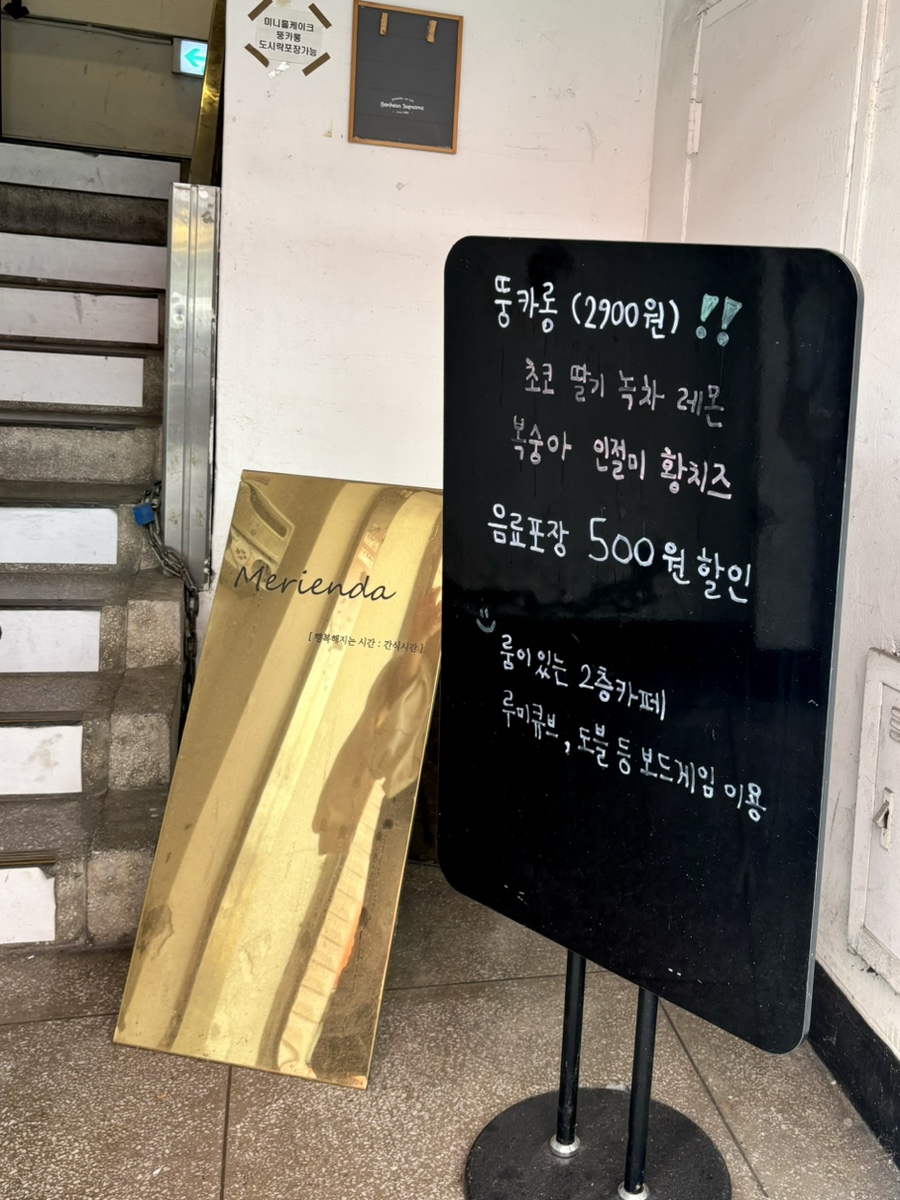 미니홀케이크
뚱카롱
도시락포장가능
Bonheur Supreme
뚱카롱 (2900원) !!
초코 딸기 녹차 레몬
복숭아 인절미 황치즈
음료포장 500원 할인
룸이 있는 2층카페
루미큐브, 도블 등 보드게임 이용
Merienda
[ 행복해지는 시간 : 간식시간 ]